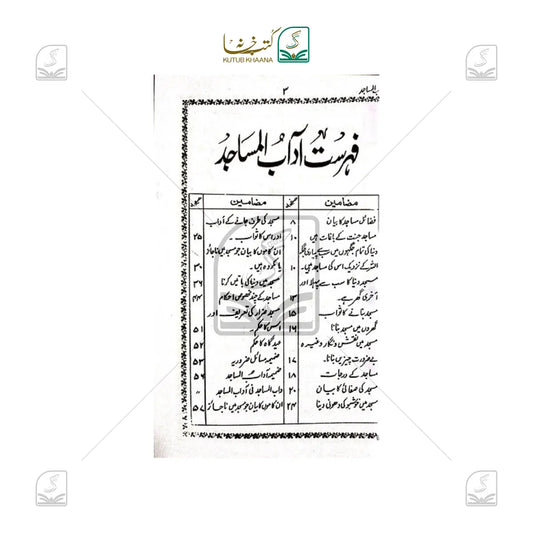 کتب خانہ
KUTUB KHAANA
۳
المساجد
فہرست آداب المساجد
مضامین صفحہ مضامین صفحہ
فضائل مساجد کا بیان ۸
مساجد جنت کے باغات ہیں ۱۰
دنیا کی تمام جگہوں میں سے پیاری جگہ
اللہ کے نزدیک اس کی مساجد ہیں۔ ۱۰
مسجد دنیا کا سب سے پہلا اور
آخری گھر ہے۔ ۱۳
مسجد بنانے کا ثواب ۱۵
گھروں میں مسجد بنانا ۱۶
مسجد میں نقش و نگار وغیرہ
بے ضرورت چیزیں بنانا۔ ۱۷
مساجد کے درجات ۱۸
مسجد کی صفائی کا بیان ۲۰
مسجد میں خوشبو کی دھونی دینا ۲۴
مسجد کی طرف جانے کے آداب
اور اس کا ثواب۔ ۲۵
ان کاموں کا بیان جو مسجد میں ناجائز
یا مکروہ ہیں۔ ۳۰
مسجد میں دنیا کی باتیں کرنا ۳۶
مساجد کے چند مخصوص احکام ۴۴
مسجد ضرار کی تعریف اور
اس کا حکم۔ ۵۱
عیدگاہ کا حکم ۵۲
ضمیمہ مسائل ضروریہ ۵۳
ضمیمہ آداب المساجد ۵۶
داب المساجد فی آداب المساجد "
ان کاموں کا بیان جو مسجد میں ناجائز ۵۷